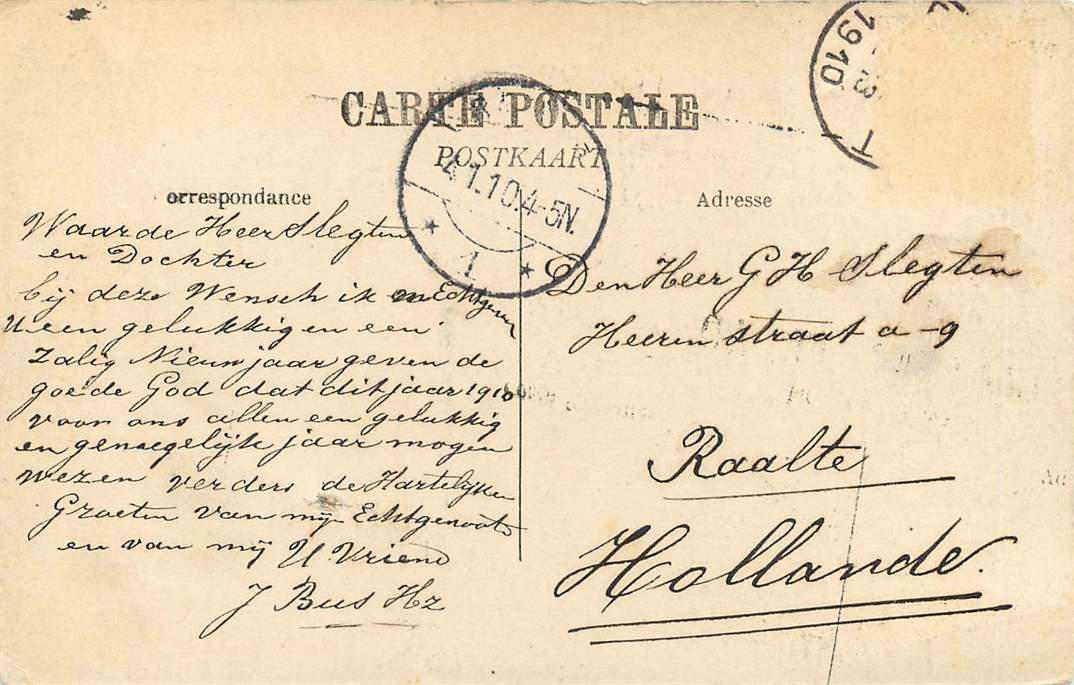 CARTE POSTALE
POSTKAART
4.1.10.4-5N.
1
1910
T
orrespondance
Adresse
Waarde Heer Slegten
en Dochter
bij deze Wensch ik en Echtgen
U een gelukkig en een
Zalig Nieuwjaar geven de
goede God dat dit jaar 1910
voor ons allen een gelukkig
en genoegelijk jaar mogen
wezen verders de Hartelijken
Groeten van mijn Echtgenoote
en van mij U Vriend
J Bus Hz
Den Heer G H Slegten
Heeren straat a-9
Raalte
Hollande.